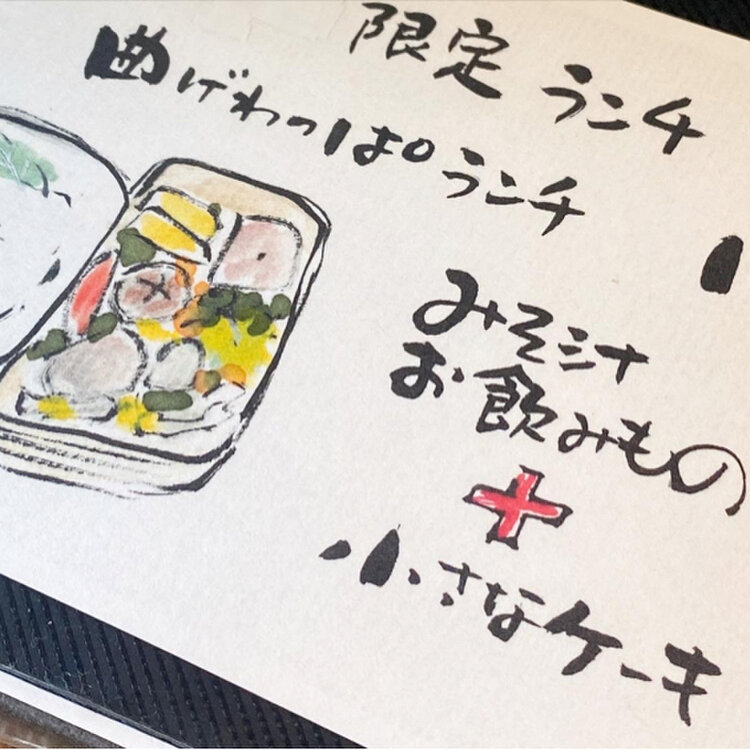 限定 ランチ
曲げわっぱランチ
みそ汁
お飲みもの
+
小さなケーキ